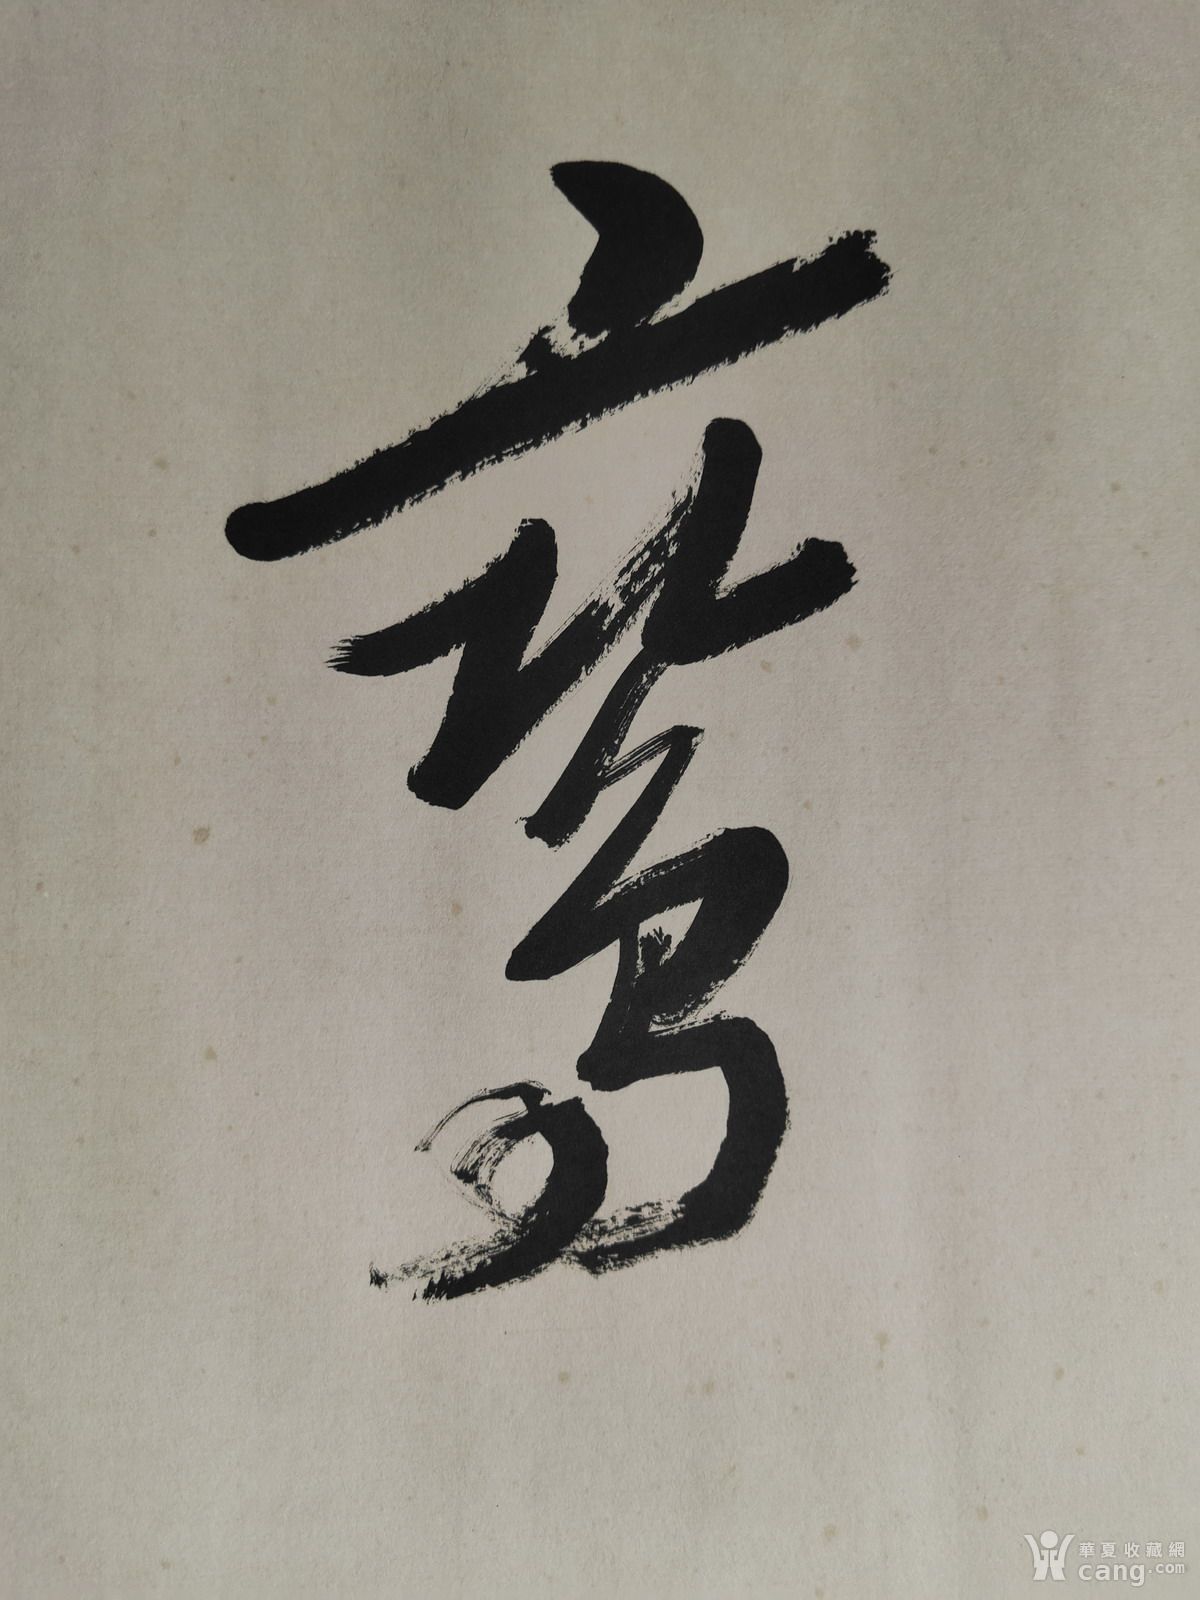 鸞
華夏收藏網
cang.com